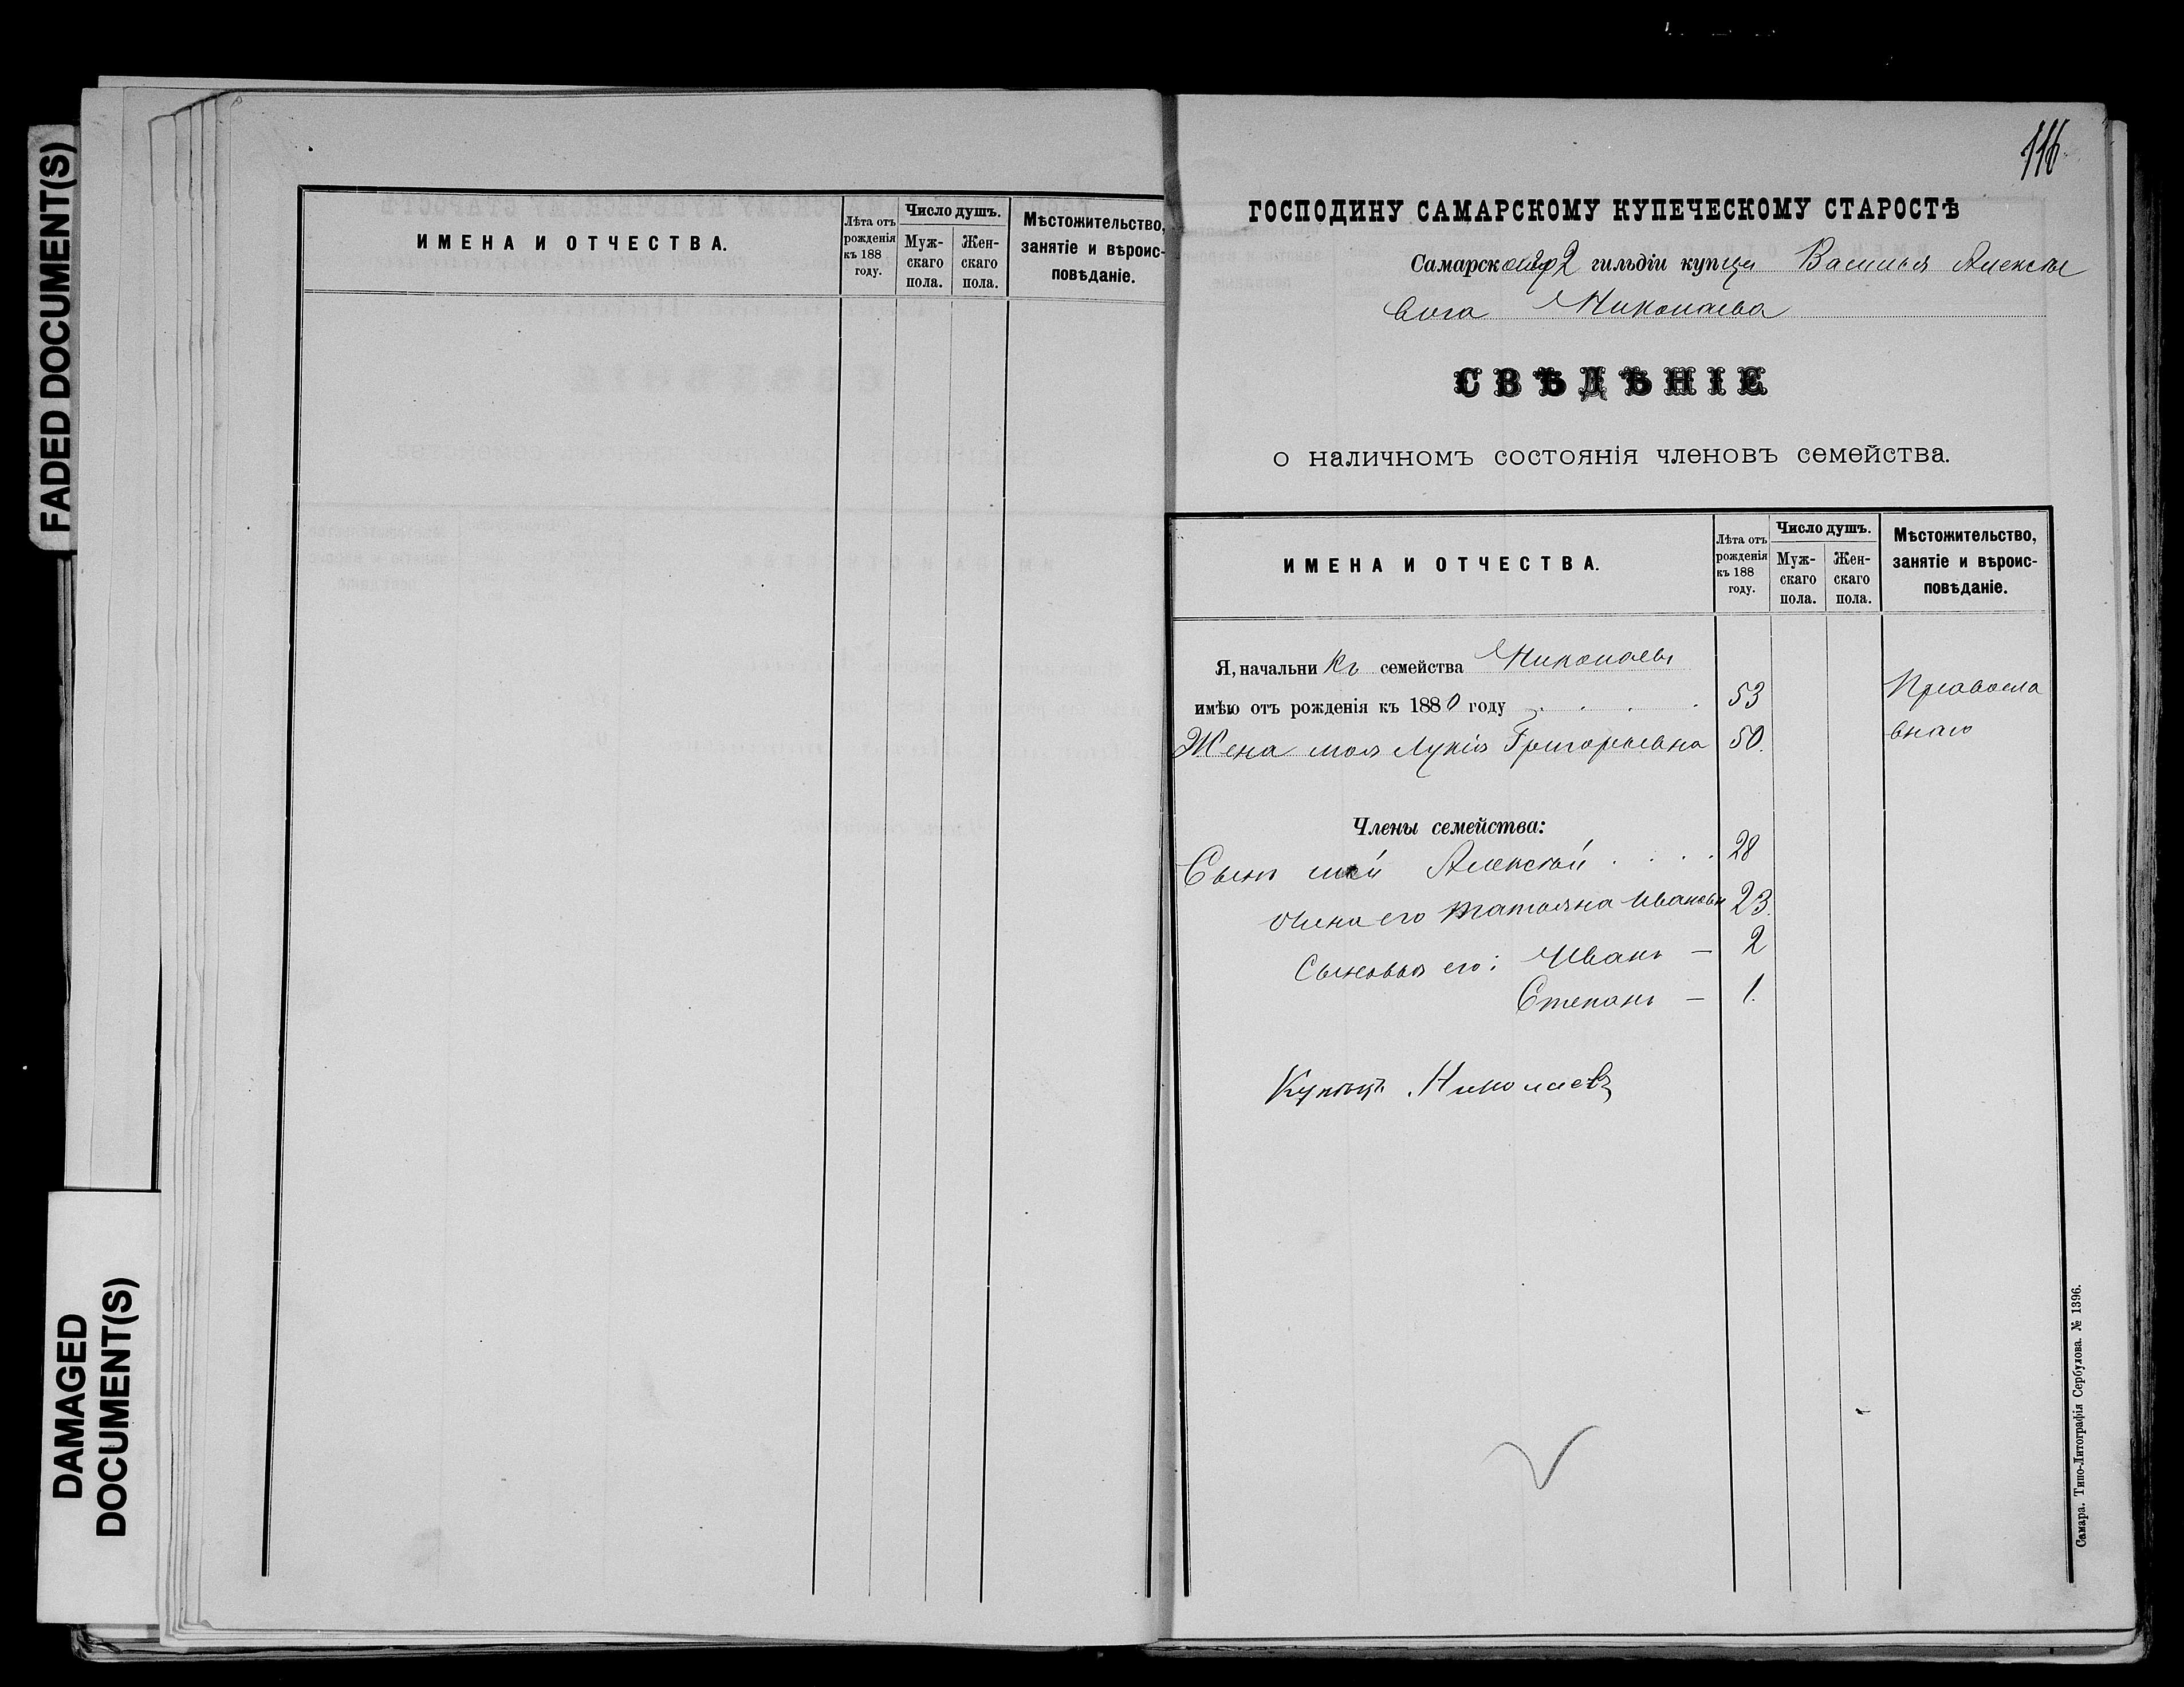 FADED DOCUMENT(S)
DAMAGED
DOCUMENT(S)
ИМЕНА И ОТЧЕСТВА.
Лѣта отъ
рожденія
къ 188
году.
Число душъ.
Муж-
скаго
пола.
Жен-
скаго
пола.
Мѣстожительство,
занятіе и вѣроис-
повѣданіе.
116
ГОСПОДИНУ САМАРСКОМУ КУПЕЧЕСКОМУ СТАРОСТѢ
Самарскаго 2 гильдіи купца Василья Алексѣе
вича Николаева
СВѢДѢНІЕ
о наличномъ состоянія членовъ семейства.
ИМЕНА И ОТЧЕСТВА.
Лѣта отъ
рожденія
къ 188
году.
Число душъ.
Муж-
скаго
пола.
Жен-
скаго
пола.
Мѣстожительство,
занятіе и вѣроис-
повѣданіе.
Я, начальникъ семейства Николаевъ
имѣю отъ рожденія къ 1880 году . . . . 53 Правосла
Жена моя Лукія Григорьевна 50. внаго
Члены семейства:
Сынъ мой Алексѣй . . . . 28
жена его Татьяна Ивановн 23.
Сыновья его: Иванъ — 2
Степанъ — 1.
Купецъ Николаевъ
Самара. Типо-Литографія Сербулова. № 1396.